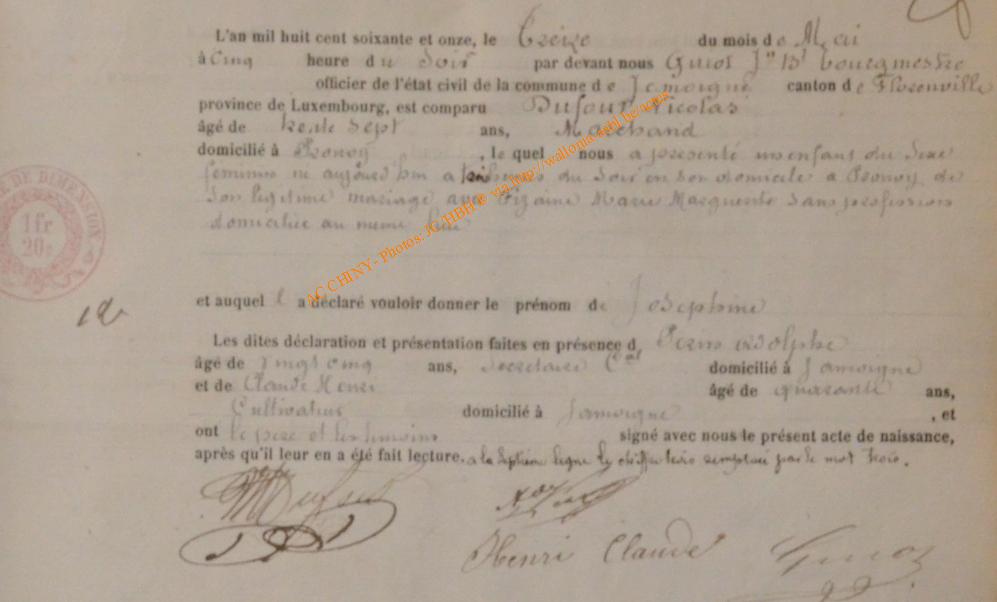 L'an mil huit cent soixante et onze, le Treize du mois de Mai
à Cinq heure du Soir par devant nous Guiot Jn Bt bourgmestre
officier de l'état civil de la commune de Jamoigne canton de Florenville
province de Luxembourg, est comparu Dufour Nicolas
âgé de trente sept ans, Marchand
domicilié à Pronoy, le quel nous a presenté un enfant du Sexe
feminin né aujourd'hui a trois heures du Soir en son domicile a Pronoy de
Son legitime mariage avec Marie Marguerite Sans profession
domiciliée au meme lieu
MBRE DE DIMENSION
1 fr
20c
AC CHINY - Photos: JC HBH © via http://wallonia-asbl.be/actes
et auquel il a déclaré vouloir donner le prénom de Josephine
Les dites déclaration et présentation faites en présence d, Adolphe
âgé de vingt cinq ans, Secretaire Cal domicilié à Jamoigne
et de Claude Henri âgé de quarante ans,
Cultivateur domicilié à Jamoigne, et
ont le pere et les temoins signé avec nous le présent acte de naissance,
après qu'il leur en a été fait lecture. a la septième ligne le chiffre trois remplacé par le mot trois.
Dufour
Henri Claude Guiot